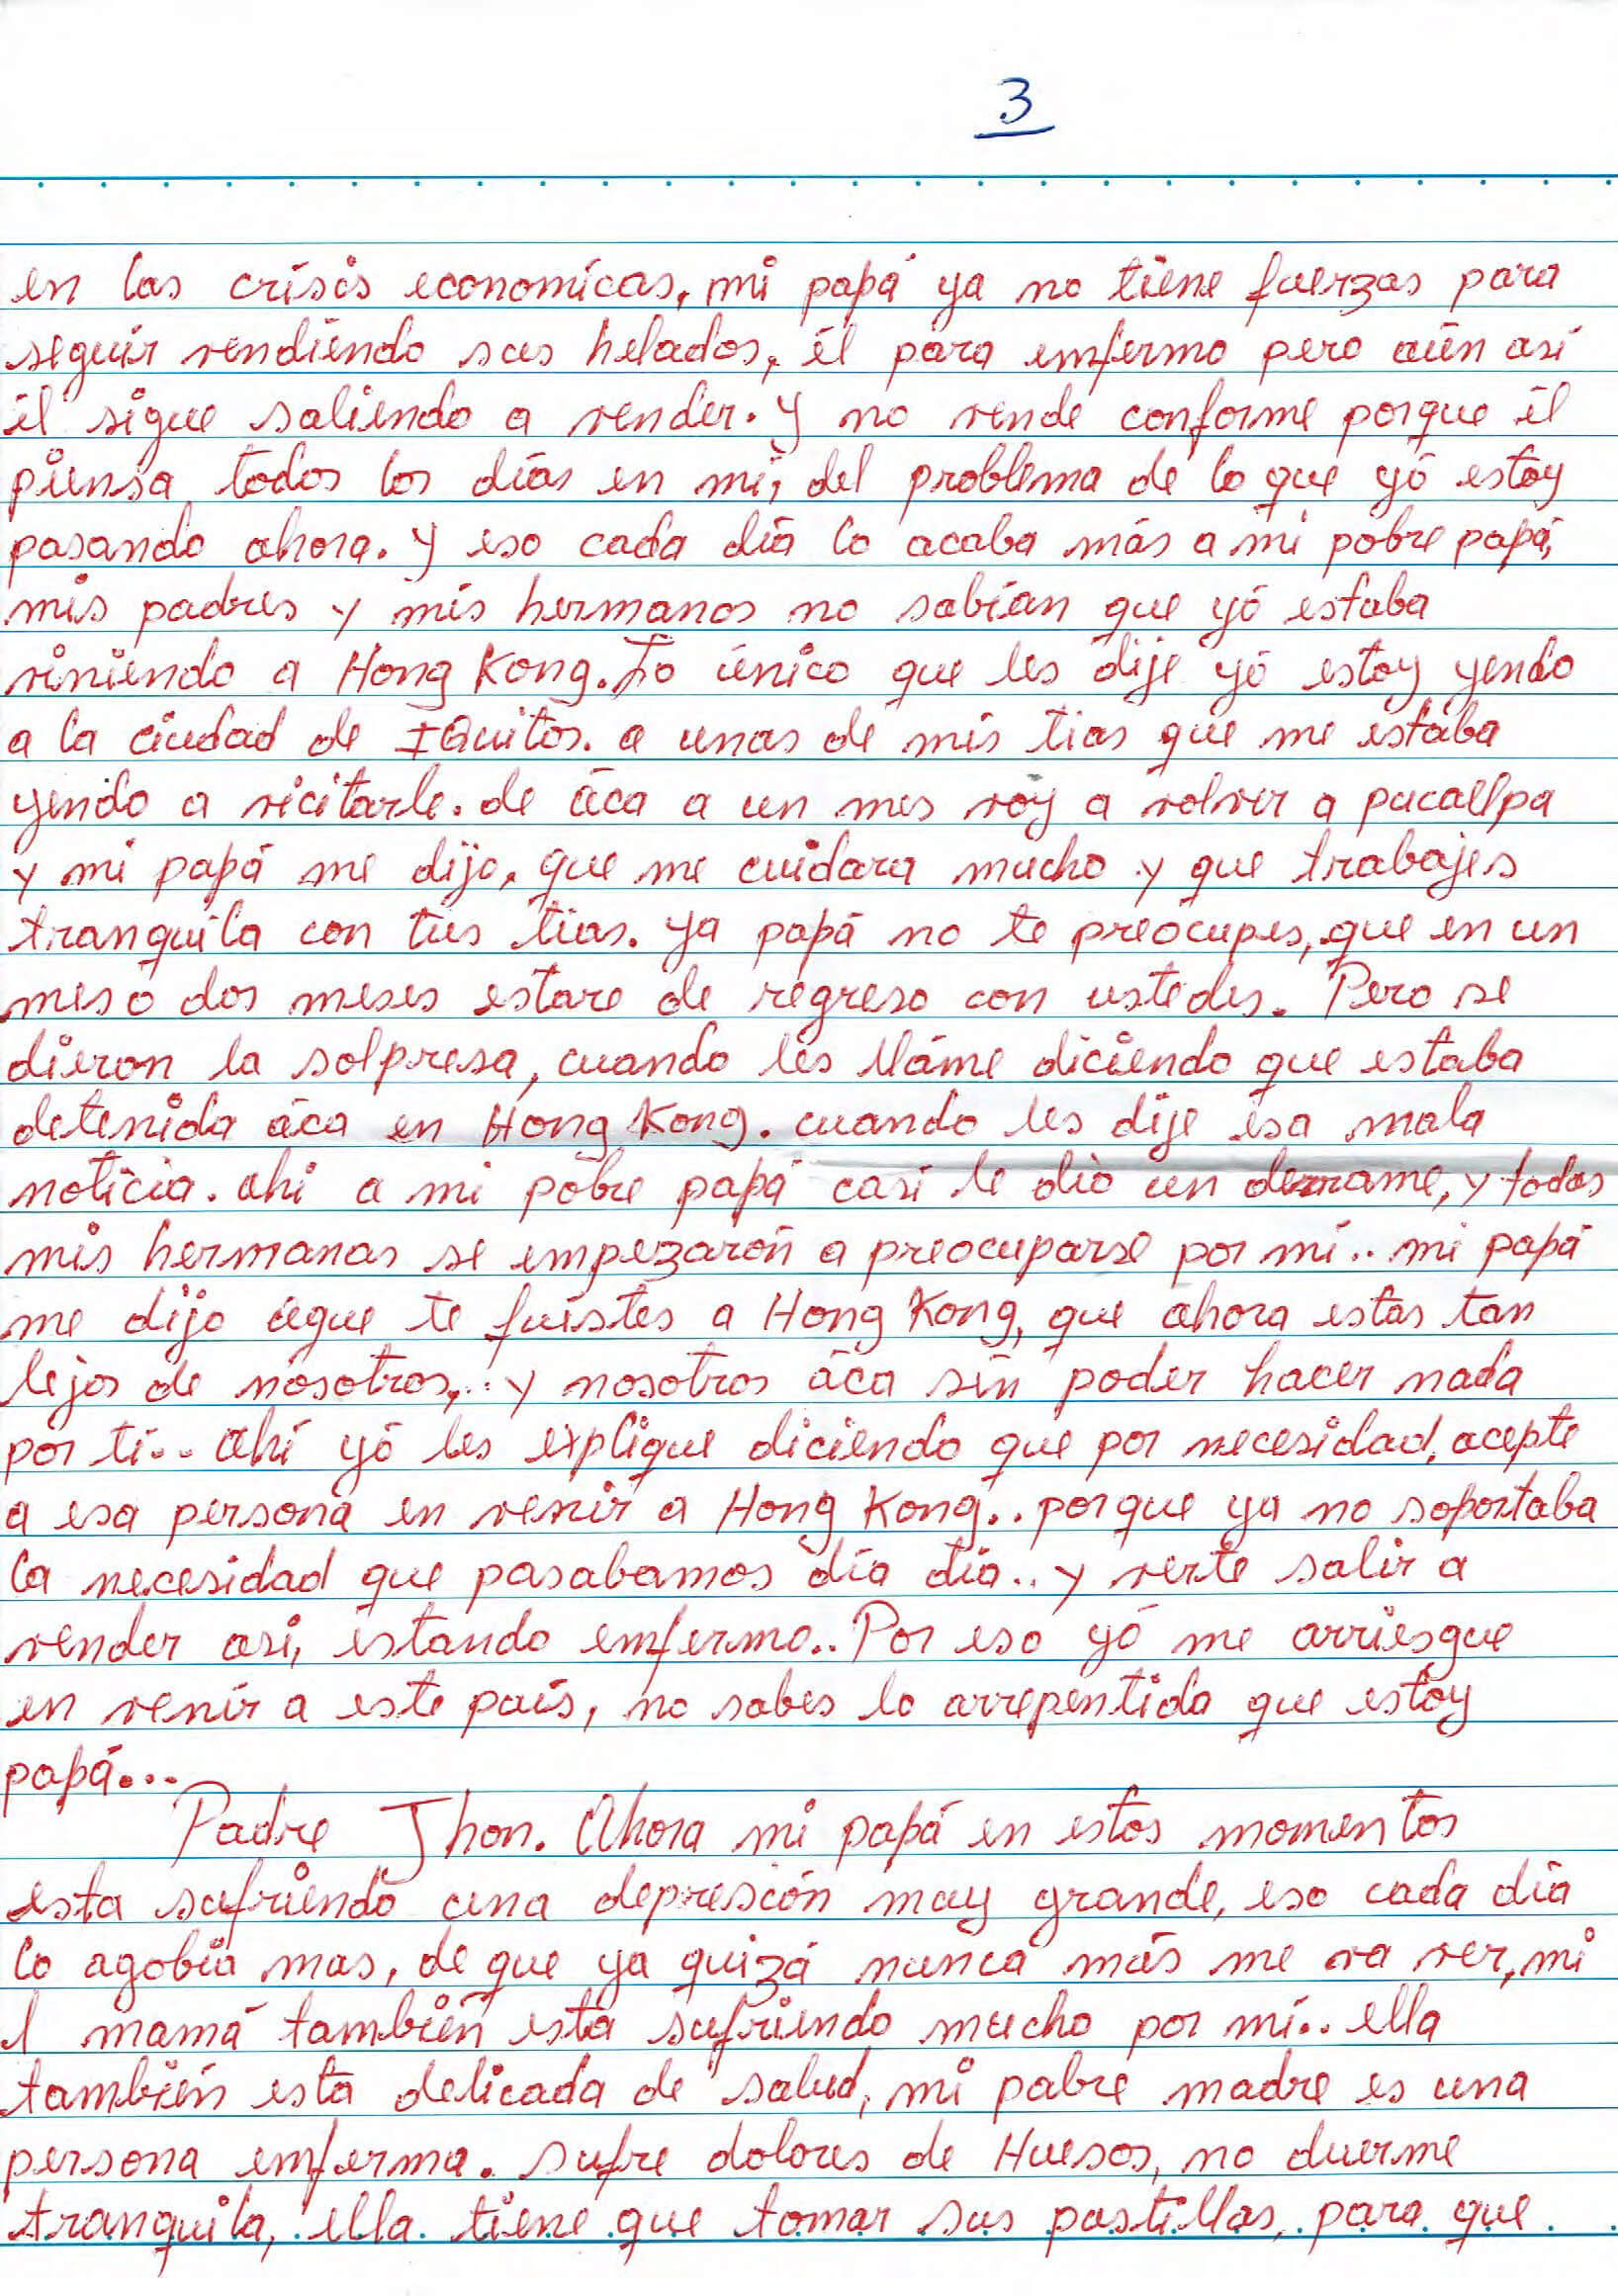 3
en las crísis economícas, mi papá ya no tiene fuerzas para
seguir vendiendo sus helados, él para emfermo pero aún así
él sigue saliendo a vender. y no vende conforme porque él
piensa todos los días en mí, del problema de lo que yó estoy
pasando ahora. y eso cada día lo acaba más a mi pobre papá,
mis padres y mís hermanos no sabían que yó estaba
viniendo a Hong Kong. Lo único que les dije yó estoy yendo
a la ciudad de IQuitos. a unas de mis tias que me estaba
yendo a vicitarle. de áca a un mes voy a volver a pucallpa
y mi papá me dijo, que me cuidara mucho y que trabajes
tranquila con tus tías. ya papá no te preócupes, que en un
mes o dos meses estare de regreso con ustedes. Pero se
dieron la solpresa, cuando les lláme diciendo que estaba
detenida áca en Hong Kong. cuando les dije esa mala
noticia. ahi a mi pobre papá casi le dió un derrame, y todas
mis hermanas se empezarón a preocuparse por mí.. mi papá
me dijo aque te fuistes a Hong Kong, que ahora estas tan
lejos de nosotros,.. y nosotros áca sín poder hacer nada
por tí.. ahí yó les explique diciendo que por necesidad, acepte
a esa persona en venir a Hong Kong.. porque ya no soportaba
la necesidad que pasabamos día día.. y verte salir a
vender asi, estando emfermo.. Por eso yó me arriesgue
en venír a este país, no sabes lo arrepentida que estoy
papá...
Padre Jhon. Ahora mi papá en estos momentos
esta sufriendo una depresción muy grande, eso cada día
lo agobia mas, de que ya quizá nunca más me va ver, mi
mamá también está sufriendo mucho por mí.. ella
también está delicada de salud, mi pabre madre es una
persona emferma. sufre dolores de Huesos, no duerme
tranquila, ella tiene que tomar sus pastillas, para que